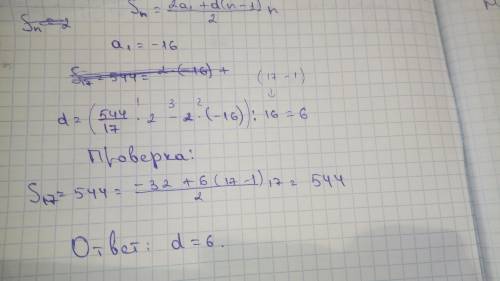 Sn = 2a₁ + d(n-1) / 2 n
a₁ = -16
S₁₇ = 544 = 2(-16) +
(17-1)
↓
d = (544/17 · 2 - 2 · (-16)) : 16 = 6
1 3 2
Проверка:
S₁₇ = 544 = -32 + 6(17-1) / 2 17 = 544
Ответ: d = 6.